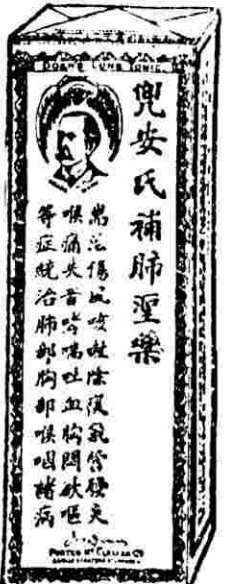 DOAN'S LUNG TONIC
兜安氏補肺聖藥
耑治傷風咳嗽陰滇氣管硬夾
喉痛失音哮喘吐血胸悶欲嘔
等症統治肺部胸部喉咽諸病
FOSTER McCLELLAN CO